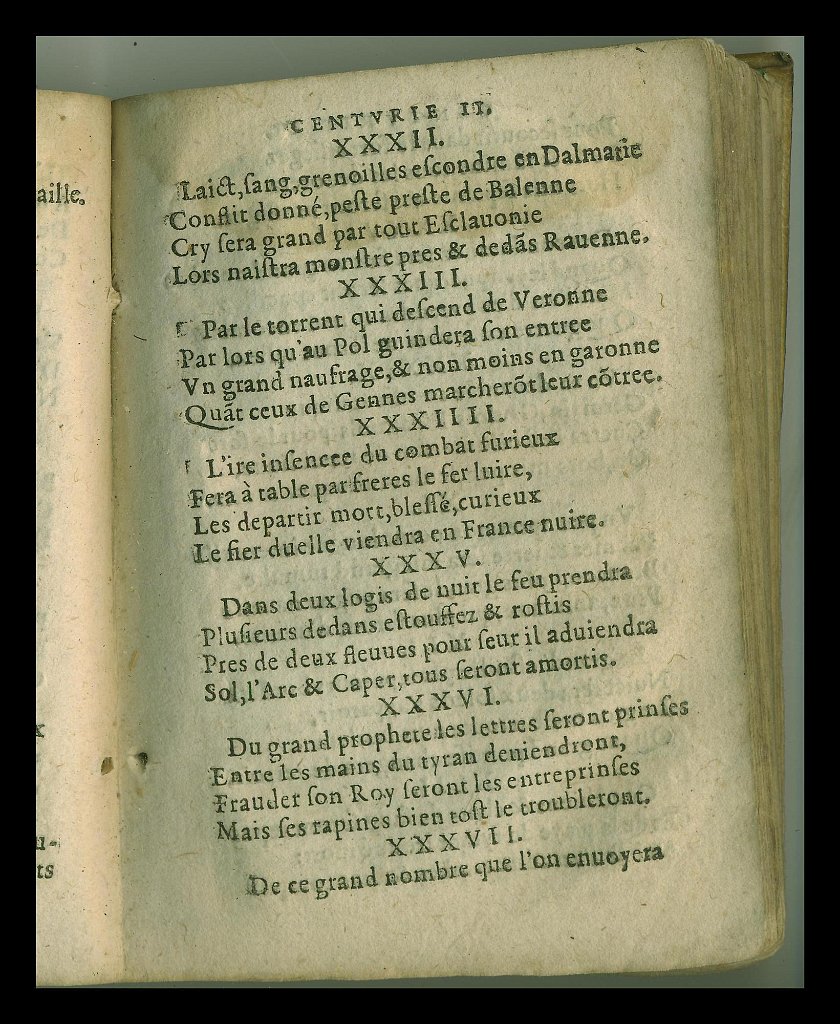 aille.
x
u-
ts
CENTVRIE II.
XXXII.
Laict,ſang,grenoilles eſcondre en Dalmatie
Conflit donné,peſte preſte de Balenne
Cry ſera grand par tout Eſclauonie
Lors naiſtra monſtre pres & dedãs Rauenne.
XXXIII.
Par le torrent qui deſcend de Veronne
Par lors qu'au Pol guindera ſon entree
Vn grand naufrage,& non moins en garonne
Quãt ceux de Gennes marcherõt leur cõtree.
XXXIIII.
L'ire inſencee du combat furieux
Fera à table par freres le fer luire,
Les departir mort,bleſſé,curieux
Le fier duelle viendra en France nuire.
XXXV.
Dans deux logis de nuit le feu prendra
Pluſieurs dedans eſtouffez & roſtis
Pres de deux fleuues pour ſeur il aduiendra
Sol,l'Arc & Caper,tous ſeront amortis.
XXXVI.
Du grand prophete les lettres ſeront prinſes
Entre les mains du tyran deuiendront,
Frauder ſon Roy ſeront les entreprinſes
Mais ſes rapines bien toſt le troubleront.
XXXVII.
De ce grand nombre que l'on enuoyera